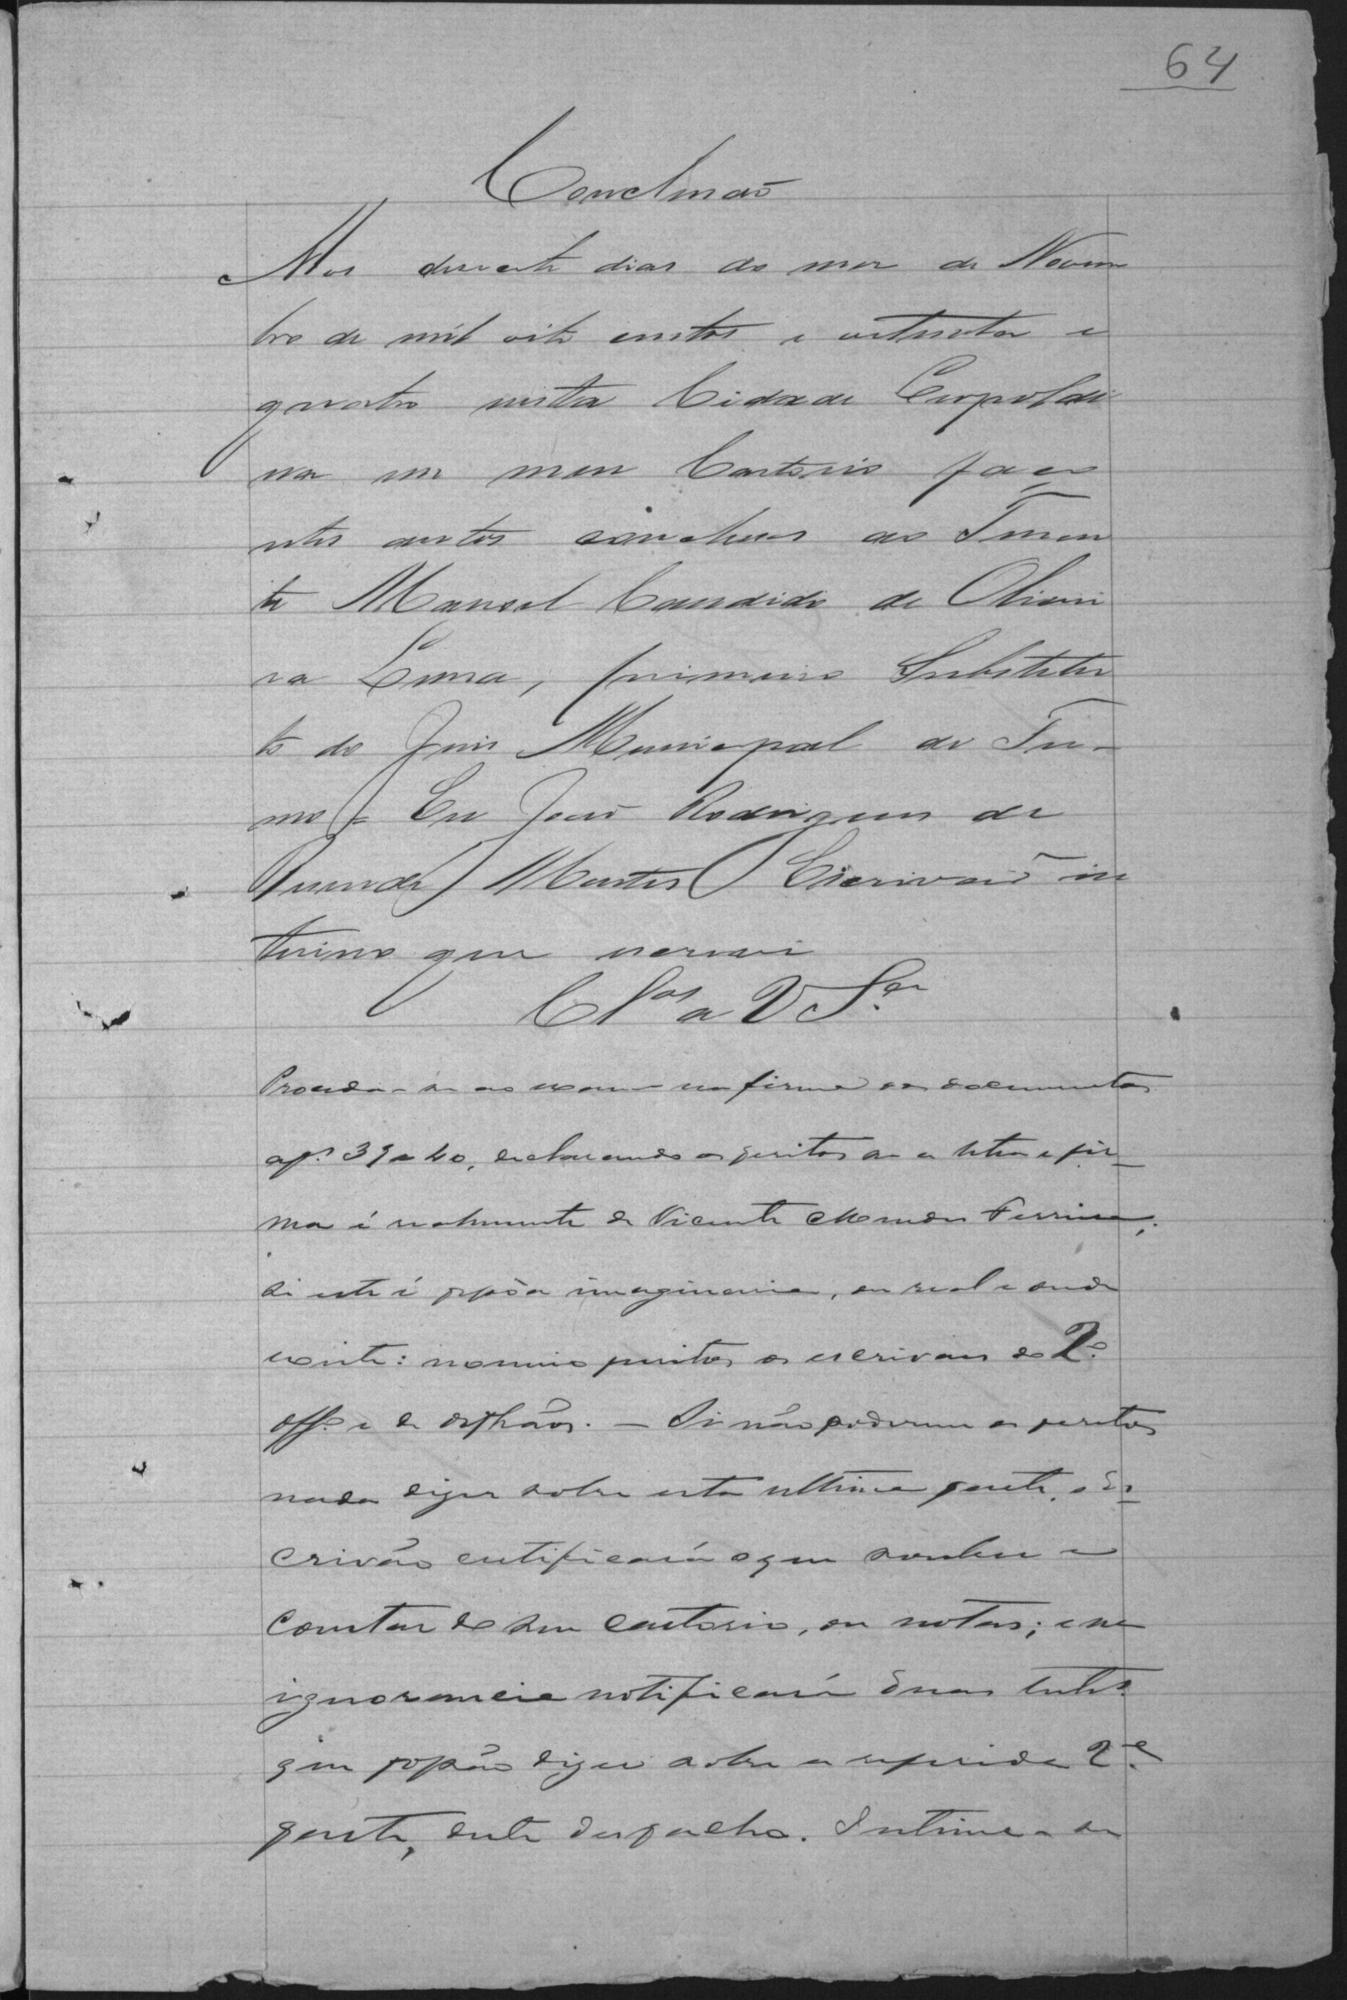 64
Conclusão
Aos desecete dias do mes de Novem
bro de mil oito centos e oitenta e
quatro nesta Cidade Leopoldi
na em meu Cartorio faço
estes autos conclusos ao Tenen
te Manoel Candido de Olivei
ra Lima, primeiro Substitu
to do Juis Municipal do Ter-
mo = Eu João Rodrigues de
Miranda Escrivão in
terino que escrevi
Clos a V. Sª
Proceda-se ao exame na firma dos documentos
afs. 39 a 40, declarando os peritos se a letra e fir-
ma é realmente de Vicente Mendes Ferreira;
si este é pessôa imaginaria, ou real e onde
existe: nomeio peritos os escrivaes do 2º
offº e de orfhãos. — Si não poderem os peritos
nada dizer sobre esta ultima parte, o Es-
crivão certificará o que souber e
constar de seu cartorio, ou notas; e na
ignorancia notificará duas testªs
que possão dizer sobre a referida 2ª
parte, deste despacho. Intime-se